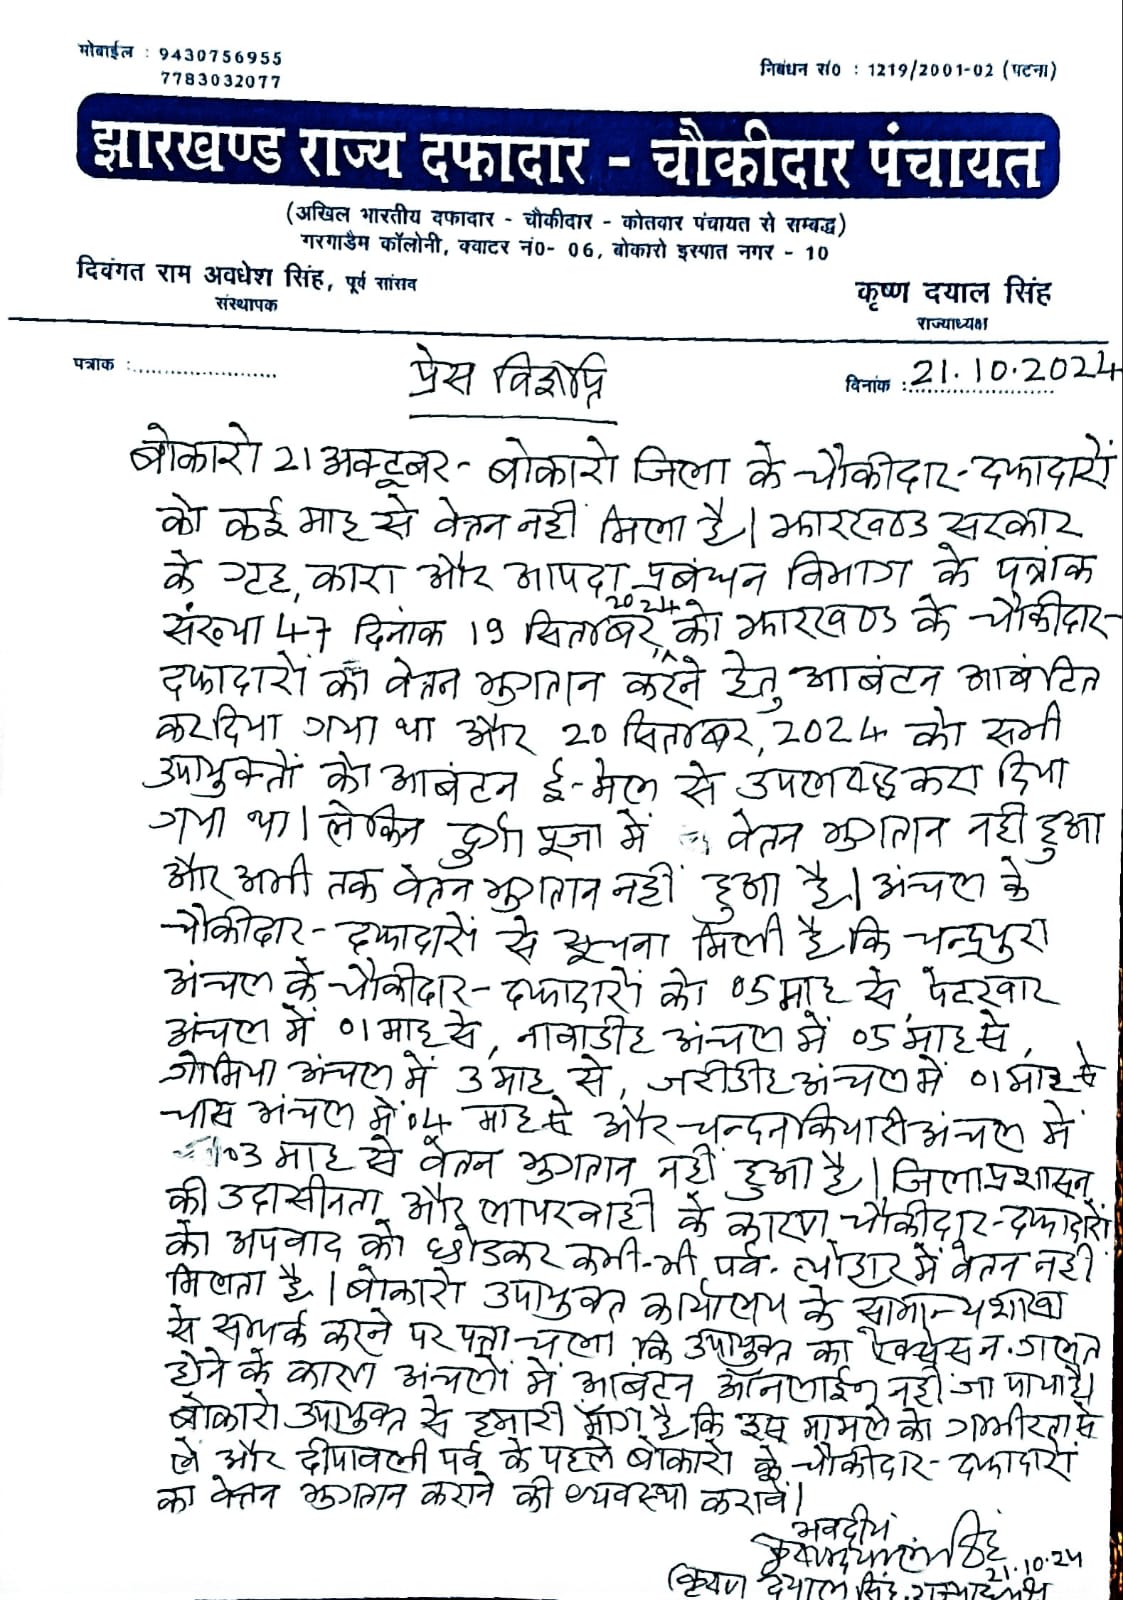 मोबाईल : 9430756955
7783032077
निबंधन सं0 : 1219/2001-02 (पटना)
झारखण्ड राज्य दफादार - चौकीदार पंचायत
(अखिल भारतीय दफादार - चौकीदार - कोतवार पंचायत से सम्बद्ध)
गरगाडैम कॉलोनी, क्वाटर नं0- 06, बोकारो इस्पात नगर - 10
दिवंगत राम अवधेश सिंह, पूर्व सांसद
संस्थापक
कृष्ण दयाल सिंह
राज्याध्यक्ष
पत्राक :........................
प्रेस विज्ञप्ति
दिनांक : 21.10.2024
बोकारो 21 अक्टूबर - बोकारो जिला के चौकीदार-दफादारों
को कई माह से वेतन नहीं मिला है। झारखण्ड सरकार
के गृह, कारा और आपदा प्रबंधन विभाग के पत्रांक
संख्या 47 दिनांक 19 सितम्बर, 2024 को झारखण्ड के चौकीदार-
दफादारों को वेतन भुगतान करने हेतु आबंटन आबंटित
कर दिया गया था और 20 सितम्बर, 2024 को सभी
उपायुक्तों को आबंटन ई-मेल से उपलब्द्ध करा दिया
गया था। लेकिन दुर्गा पूजा में वेतन भुगतान नहीं हुआ
और अभी तक वेतन भुगतान नहीं हुआ है। अंचल के
चौकीदार-दफादारों से सूचना मिली है कि चन्द्रपुरा
अंचल के चौकीदार-दफादारों को 05 माह से, पेटरवार
अंचल में 01 माह से, नावाडीह अंचल में 05 माह से,
गोमिया अंचल में 3 माह से, जरीडीह अंचल में 01 माह से
चास अंचल में 04 माह से और चन्दनकियारी अंचल में
03 माह से वेतन भुगतान नहीं हुआ है। जिला प्रशासन
की उदासीनता और लापरवाही के कारण चौकीदार-दफादारों
को अपवाद को छोडकर कभी-भी पर्व-त्योहार में वेतन नहीं
मिलता है। बोकारो उपायुक्त कार्यालय के सामान्य शाखा
से सम्पर्क करने पर पता चला कि उपायुक्त का गलत
होने के कारण अंचलों में आबंटन ऑनलाईन नहीं जा पाया है।
बोकारो उपायुक्त से हमारी मांग है कि इस मामले को गम्भीरता से
लें और दीपावली पर्व के पहले बोकारो के चौकीदार-दफादारों
का वेतन भुगतान कराने की व्यवस्था करावें।
भवदीय
कृष्ण दयाल सिंह
21.10.24
(कृष्ण दयाल सिंह, राज्याध्यक्ष